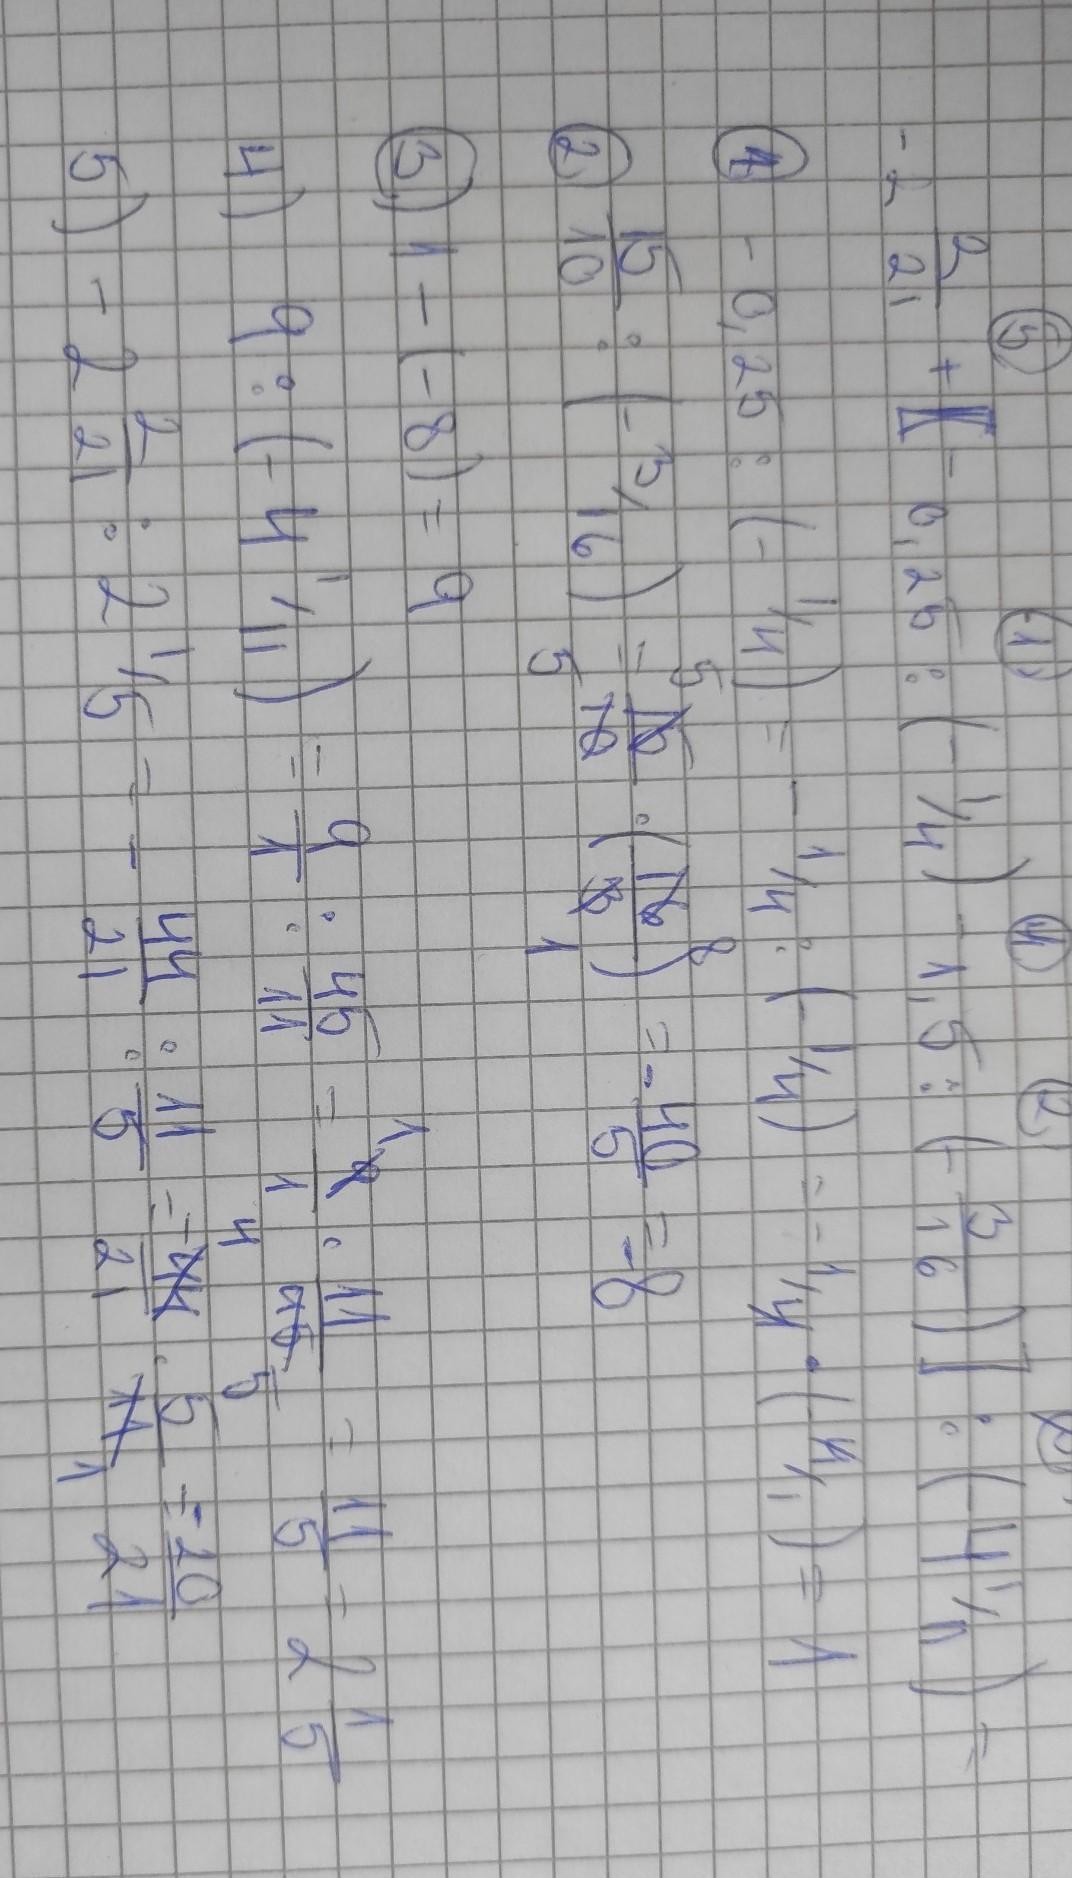 ⑤ ① ④ ② ③
-2 2/21 + [-0,25 : (-1/4) - 1,5 : (-3/16)] : (-4 1/11) =
① -0,25 : (-1/4) = -1/4 : (-1/4) = -1/4 · (-4/1) = 1
② 15/10 : (-3/16) = 15/10 · (16/3) = -40/5 = -8
5 8
5 1
③ 1-(-8) = 9
4) 9 : (-4 1/11) = 9/1 : 45/11 = 9/1 · 11/45 = 11/5 = 2 1/5
1
4 5
5) -2 2/21 : 2 1/5 = -44/21 : 11/5 = -44/21 · 5/11 = -20/21
1